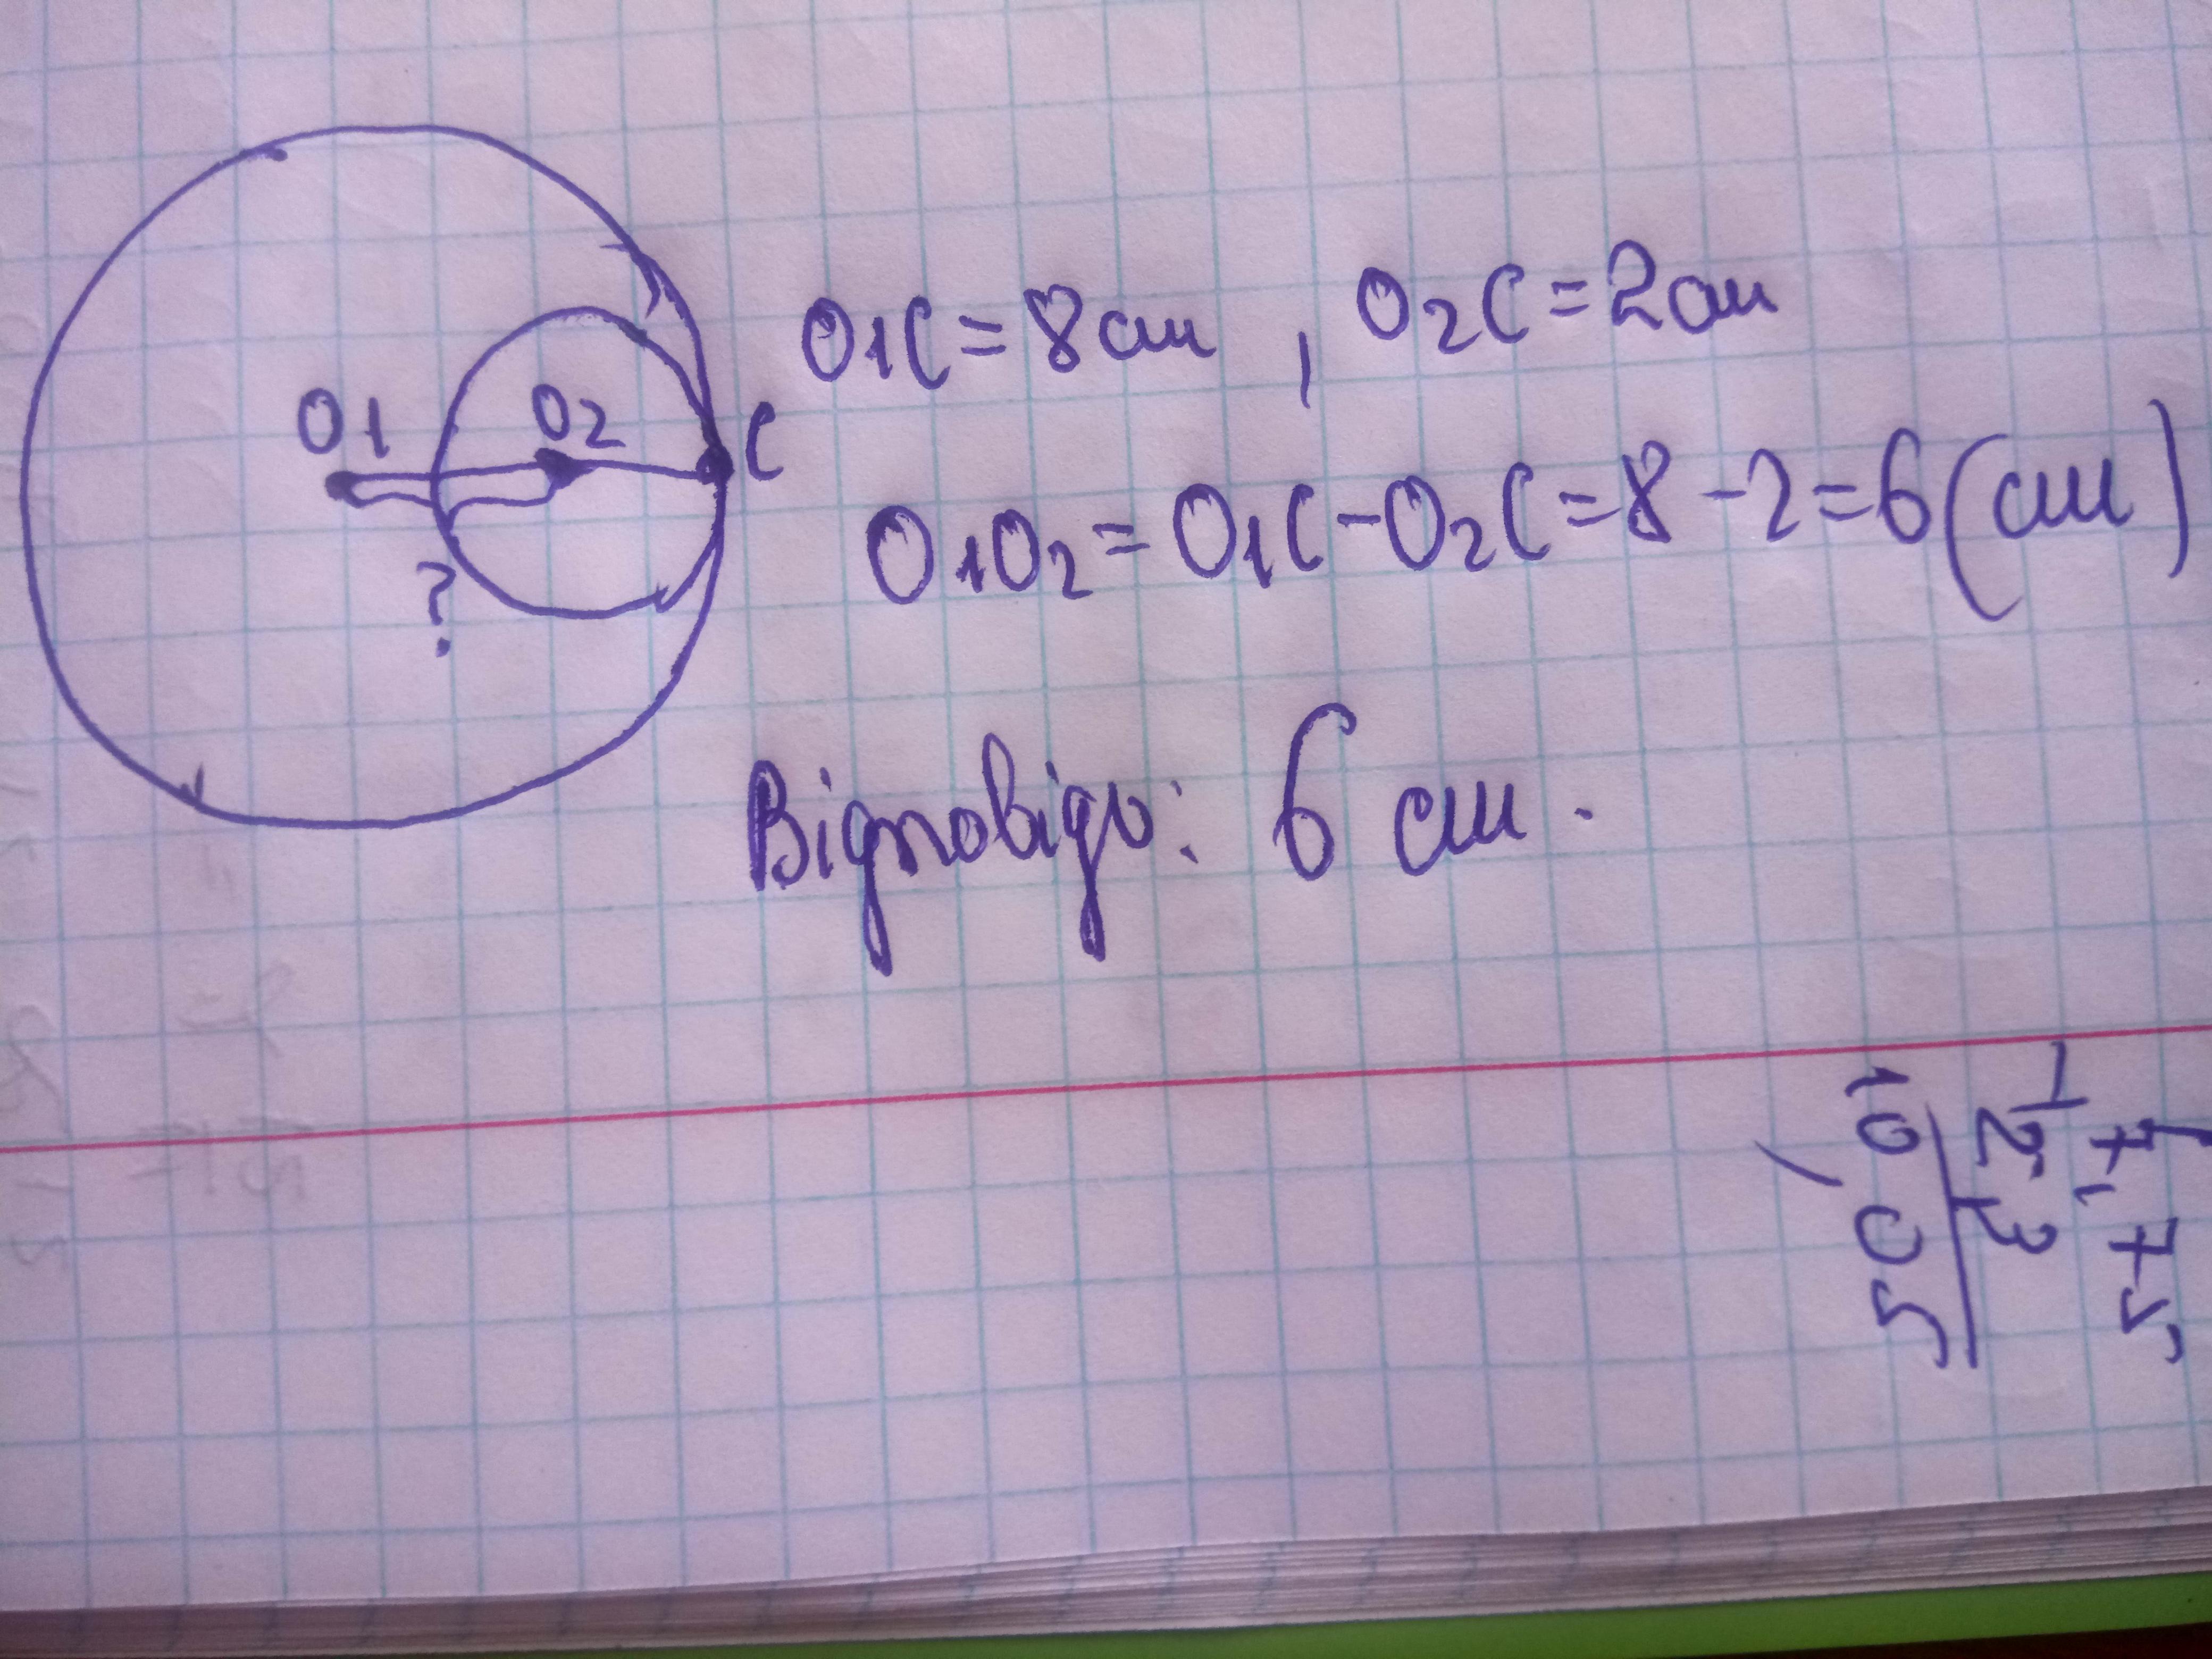 O1 O2 C
?
O1C = 8см, O2C = 2см
O1O2 = O1C - O2C = 8 - 2 = 6 (см)
Відповідь: 6 см.
7,75
2,3
10,05